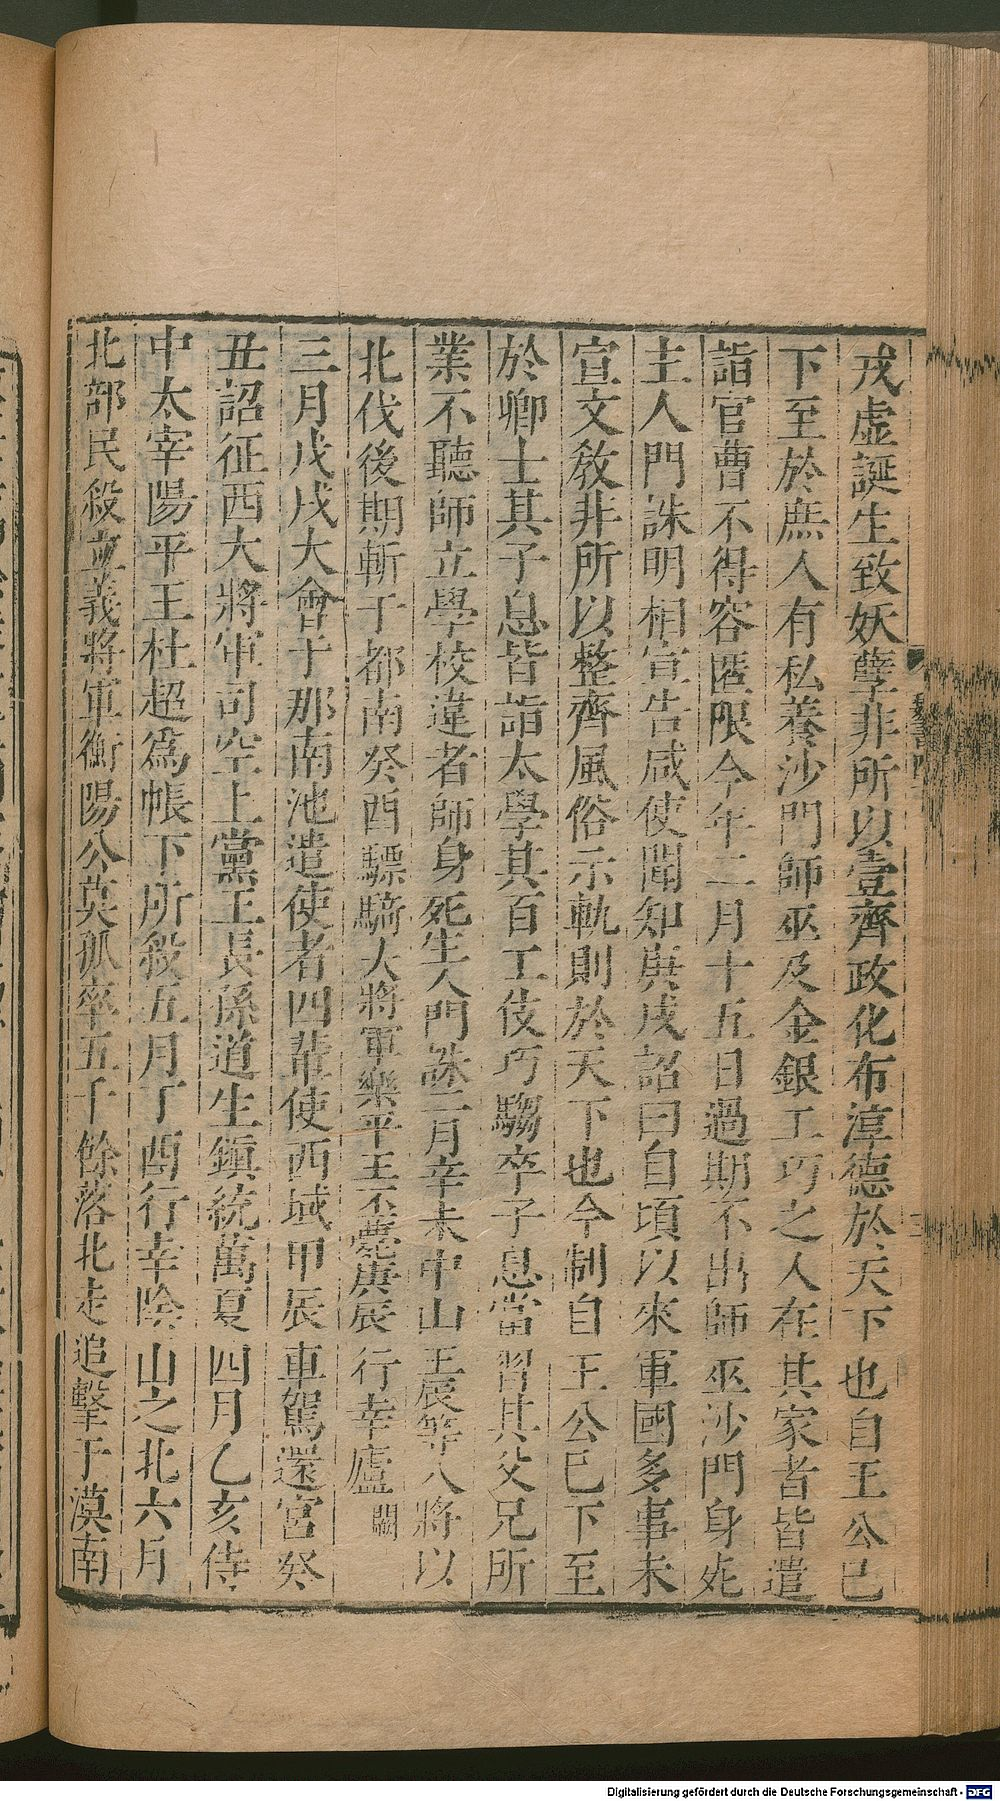 戎虛誕生致妖孽非所以壹齊政化布淳德於天下也自王公已
下至於庶人有私養沙門師巫及金銀工巧之人在其家者皆遣
詣官曹不得容匿限今年二月十五日過期不出師巫沙門身死
主人門誅明相宣告咸使聞知庚戌詔曰自頃以來軍國多事未
宣文敎非所以整齊風俗示軌則於天下也今制自王公已下至
於卿士其子息皆詣太學其百工伎巧騶卒子息當習其父兄所
業不聽師立學校違者師身死生人門誅二月辛未中山王辰等八將以
北伐後期斬于都南癸酉驃騎大將軍樂平王丕薨庚辰行幸廬闕
三月戊戌大會于那南池遣使者四輩使西域甲辰車駕還宮癸
丑詔征西大將軍司空上黨王長孫道生鎭統萬夏四月乙亥侍
中太宰陽平王杜超爲帳下所殺五月丁酉行幸陰山之北六月
北部民殺立義將軍衡陽公莫孤率五千餘落北走追擊于漠南
Digitalisierung gefördert durch die Deutsche Forschungsgemeinschaft - DFG